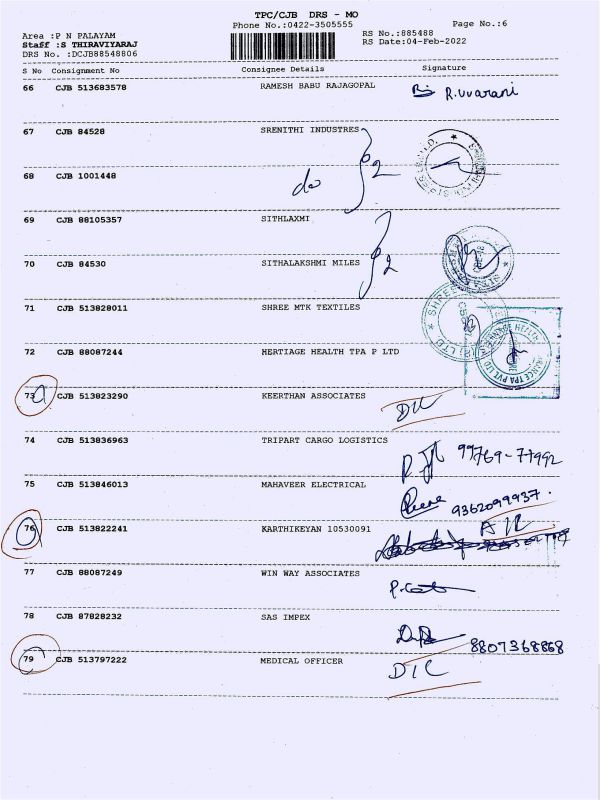 TPC/CJB DRS - MO
Phone No.:0422-3505555
Page No.:6
Area :P N PALAYAM
Staff :S THIRAVIYARAJ
DRS No. :DCJB88548806
RS No.:885488
RS Date:04-Feb-2022
S No Consignment No Consignee Details Signature
66 CJB 513683578 RAMESH BABU RAJAGOPAL R.uvarani
67 CJB 84528 SRENITHI INDUSTRES
68 CJB 1001448 do 2
69 CJB 88105357 SITHLAXMI
70 CJB 84530 SITHALAKSHMI MILES 2
71 CJB 513828011 SHREE MTK TEXTILES
72 CJB 88087244 HERTIAGE HEALTH TPA P LTD
73 CJB 513823290 KEERTHAN ASSOCIATES
74 CJB 513836963 TRIPART CARGO LOGISTICS 99769-77992
75 CJB 513846013 MAHAVEER ELECTRICAL 9362099937.
76 CJB 513822241 KARTHIKEYAN 10530091
77 CJB 88087249 WIN WAY ASSOCIATES
78 CJB 87828232 SAS IMPEX 8807368868
79 CJB 513797222 MEDICAL OFFICER DIC